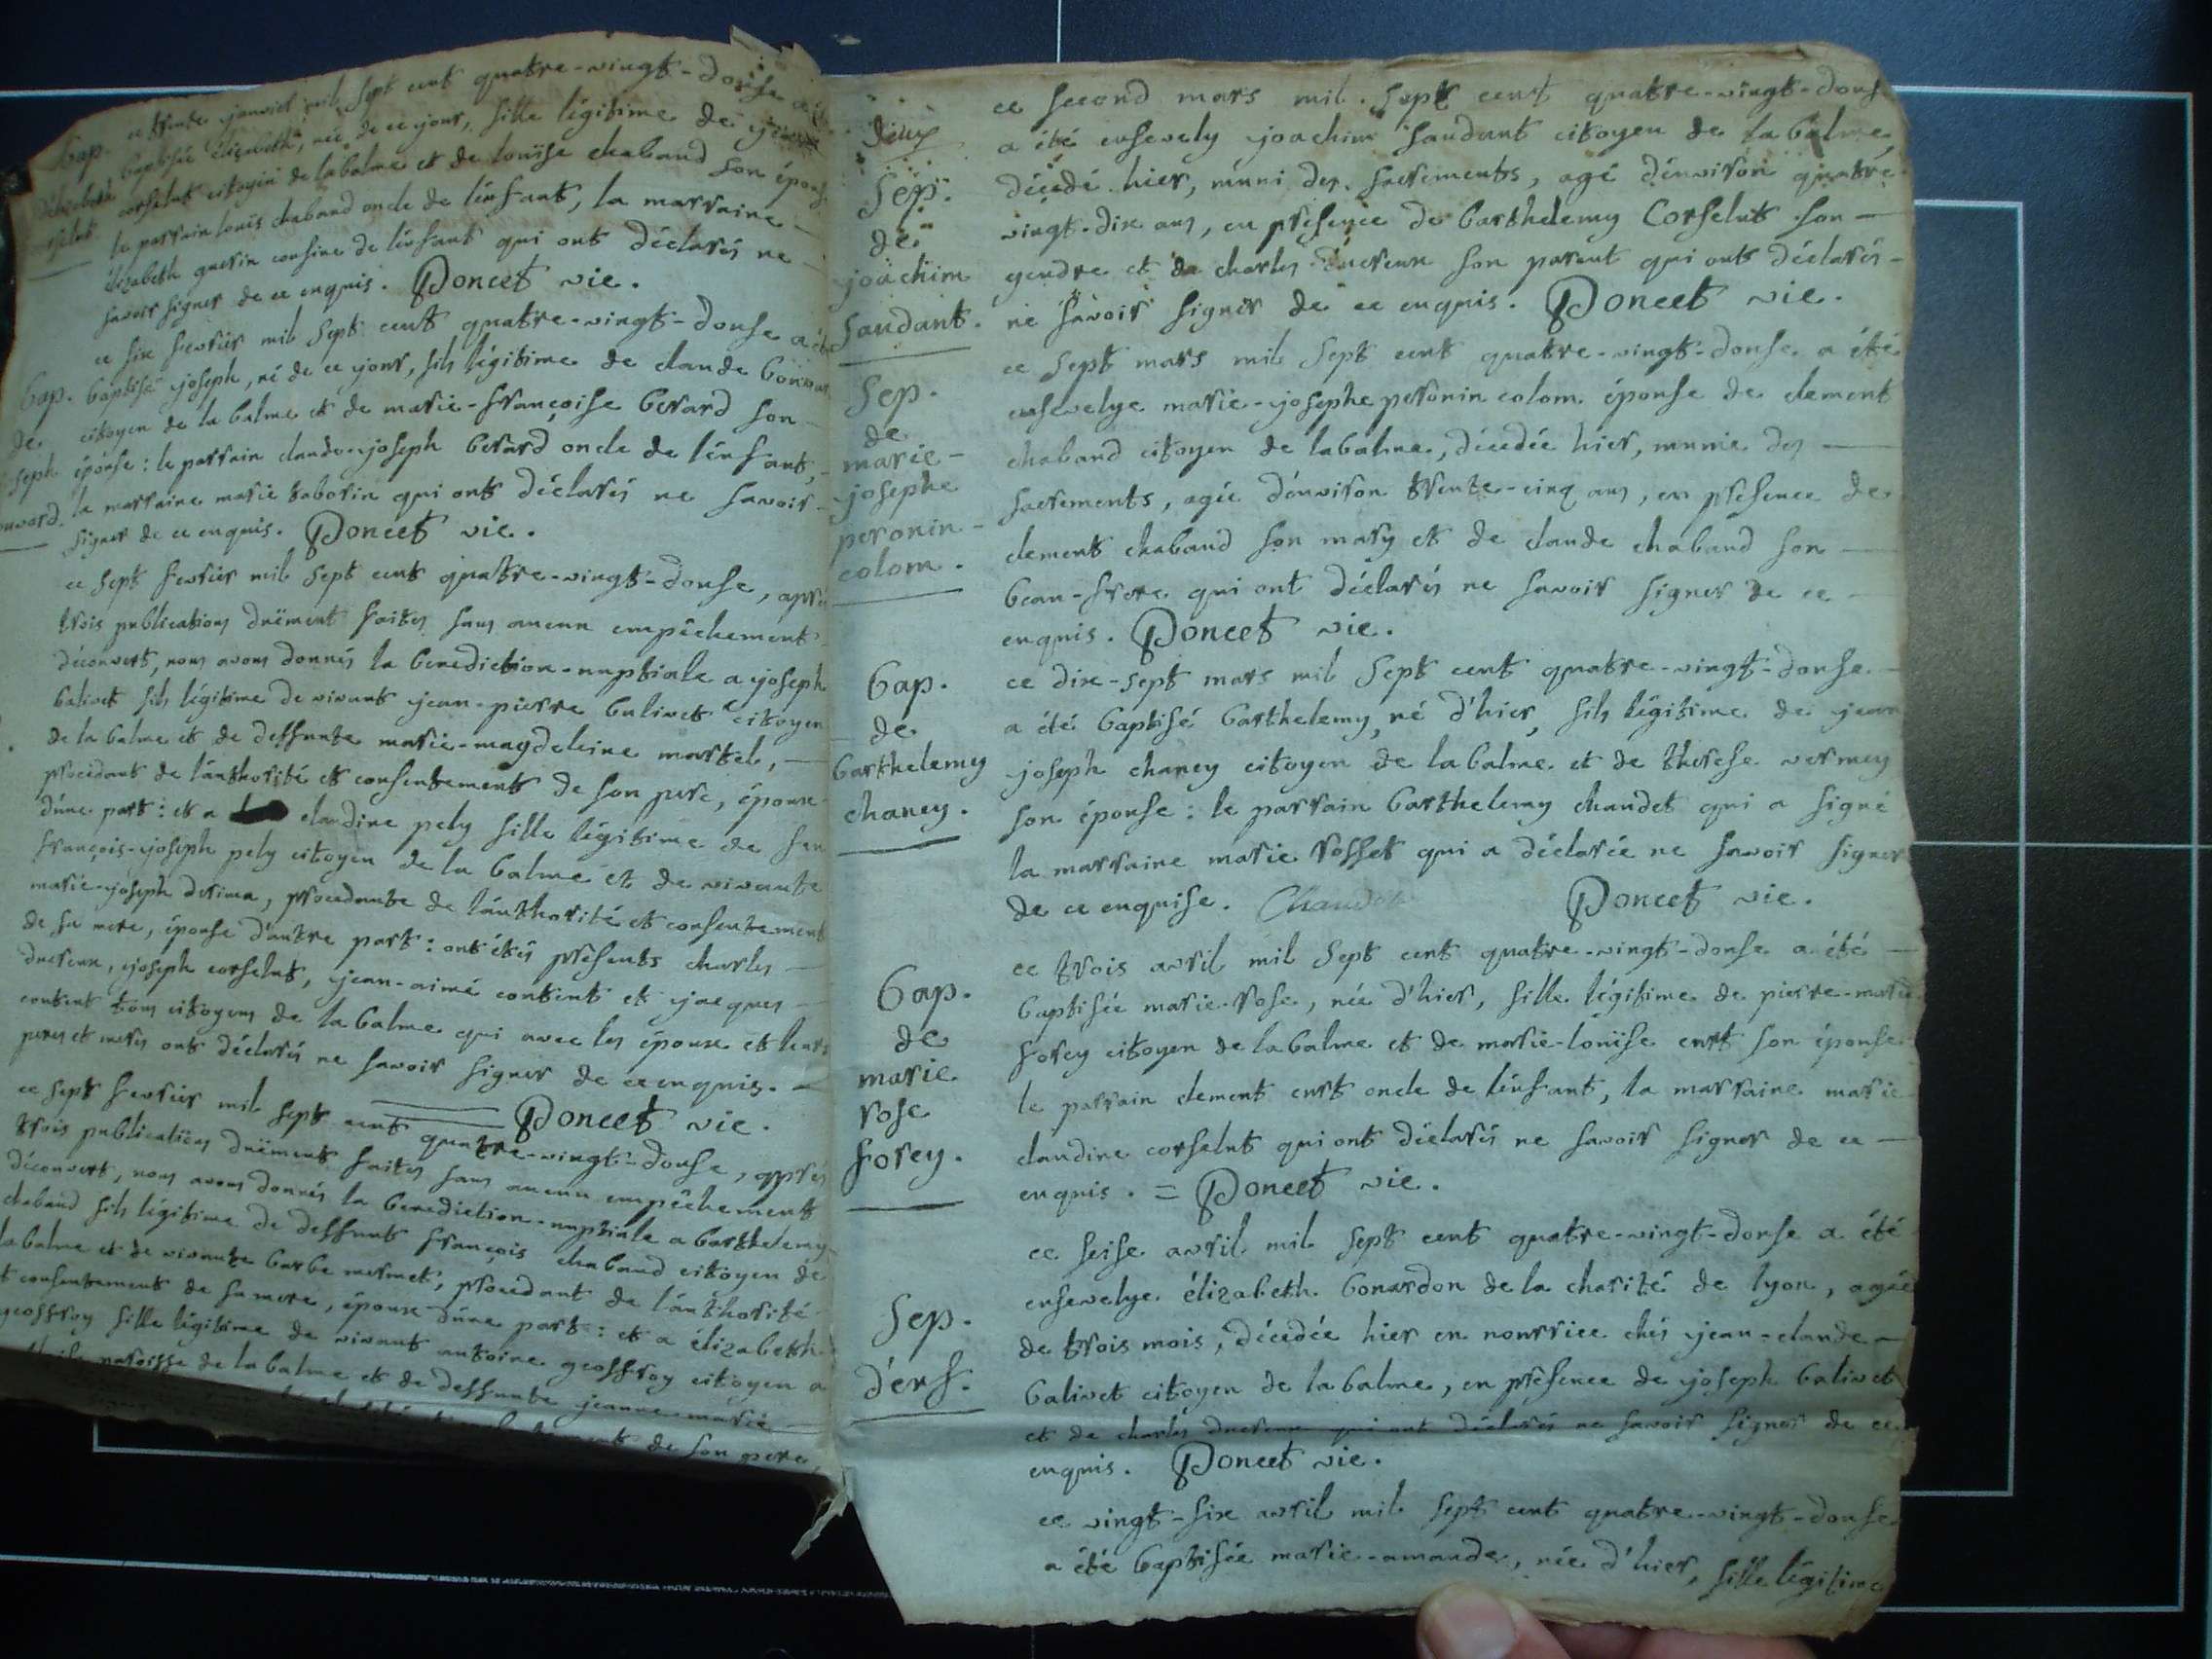 Bap. ce trente janvier mil sept cent quatre-vingt-douse a été
baptisée élizabeth, née de ce jour, fille légitime de
corselut citoyin de labalme et de louïse chaband son épouse
le parrain louis chaband oncle de l'enfant, la marraine
élizabeth guerin cousine de l'enfant qui ont déclarés ne
savoir signer de ce enquis. Poncet vic.
ce six fevrier mil sept cent quatre-vingt-douse a été
Bap. baptisé joseph, né de ce jour, fils légitime de claude
de citoyen de la balme et de marie-françoise berard son
joseph épouse : le parrain claude-joseph berard oncle de l'enfant,
la marraine marie taborin qui ont déclarés ne savoir
signer de ce enquis. Poncet vic.
ce sept fevrier mil sept cent quatre-vingt-douse, après
trois publications duëment faites sans aucun empêchement
découvert, nous avons donnés la benediction-nuptiale a joseph
balivet fils légitime de vivant jean-pierre balivet citoyen
de la balme et de deffunte marie-magdeleine martel,
procedant de l'authorité et consentement de son pere, époux
d'une part : et a claudine pely fille légitime de feu
françois-joseph pely citoyen de la balme et de vivante
marie-joseph derima, procedante de l'authorité et consentement
de sa mere, épouse d'autre part : ont étés présents charles
ducreux, joseph corselut, jean-aimé contint et jacques
contint tous citoyens de la balme qui avec les époux et leurs
peres et meres ont déclarés ne savoir signer de ce enquis.
Poncet vic.
ce sept fevrier mil sept cent quatre-vingt-douse, après
trois publications duëment faites sans aucun empêchement
découvert, nous avons donnés la benediction-nuptiale a barthelemy
chaband fils légitime de deffunt françois chaband citoyen de
la balme et de vivante barbe mermet, procedant de l'authorité
et consentement de sa mere, époux d'une part : et a élizabeth
geoffroy fille légitime de vivant antoine geoffroy citoyen a
paroisse de la balme et de deffunte jeanne-marie
de son pere,
deux
Sep.
de
joachim
saudant.
ce second mars mil sept cent quatre-vingt-douse
a été ensevely joachim saudant citoyen de la balme,
décédé hier, muni des sacrements, agé d'environ quatre
vingt-dix ans, en présence de barthelemy Corselut son
gendre et de charles ducreux son parent qui ont déclarés
ne savoir signer de ce enquis. Poncet vic.
Sep.
de
marie-
josephe
peronin-
colom.
ce sept mars mil sept cent quatre-vingt-douse a été
ensevelye marie-josephe peronin colom épouse de clement
chaband citoyen de labalme, décédée hier, munie des
sacrements, agée d'environ trente-cinq ans, en présence de
clement chaband son mary et de claude chaband son
beau-frere qui ont déclarés ne savoir signer de ce
enquis. Poncet vic.
Bap.
de
barthelemy
chaney.
ce dix-sept mars mil sept cent quatre-vingt-douse
a été baptisé barthelemy, né d'hier, fils légitime de jean
joseph chaney citoyen de labalme et de therese vermey
son épouse : le parrain barthelemy chaudet qui a signé
la marraine marie rosset qui a déclarée ne savoir signer
de ce enquise. Chaudet Poncet vic.
Bap.
de
marie
rose
forey.
ce trois avril mil sept cent quatre-vingt-douse a été
baptisée marie-rose, née d'hier, fille légitime de pierre-marie
forey citoyen de labalme et de marie-louïse curt son épouse
le parrain clement curt oncle de l'enfant, la marraine marie
claudine corselut qui ont déclarés ne savoir signer de ce
enquis. = Poncet vic.
Sep.
d'enf.
ce seise avril mil sept cent quatre-vingt-douse a été
ensevelye élizabeth bonardon de la charité de lyon, agée
de trois mois, décédée hier en nourrice chés jean-claude
balivet citoyen de la balme, en présence de joseph balivet
et de charles ducreux qui ont déclarés ne savoir signer de ce
enquis. Poncet vic.
ce vingt-six avril mil sept cent quatre-vingt-douse
a été baptisée marie-amande, née d'hier, fille légitime